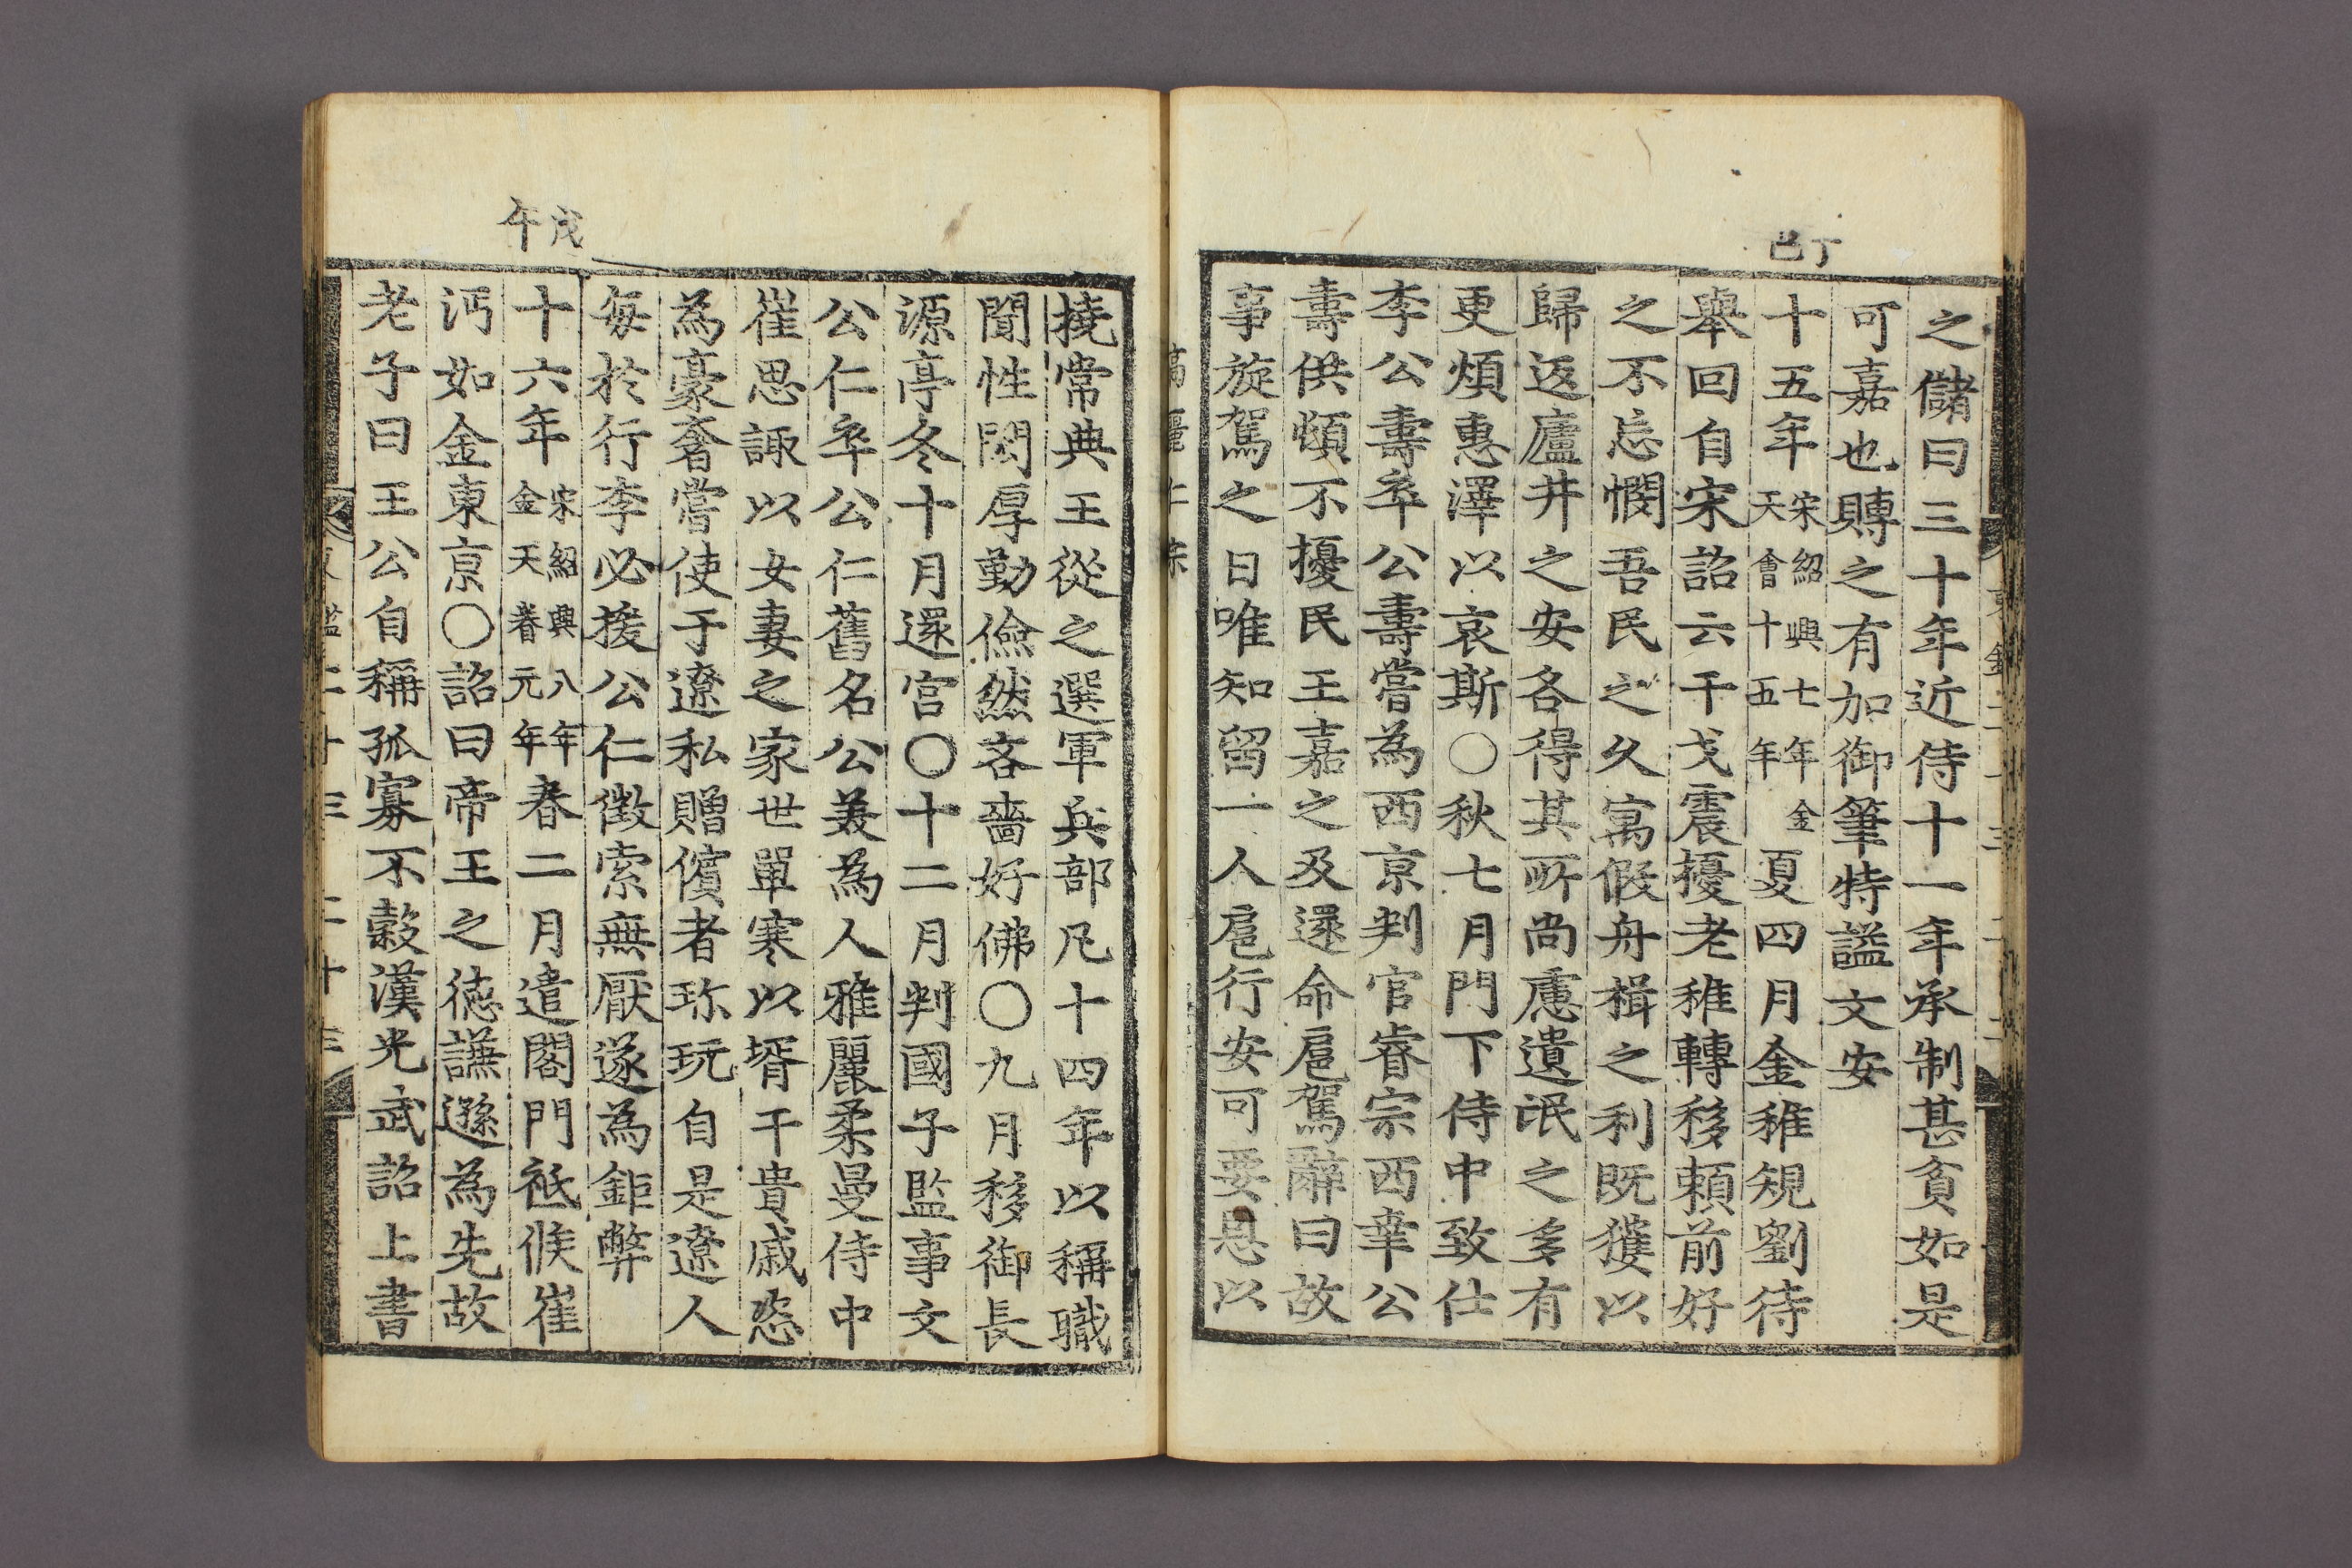 丁巳
之儲曰三十年近侍十一年承制甚貧如是
可嘉也賻之有加御筆特謚文安
十五年宋紹興七年金天會十五年夏四月金稚規劉待
舉回自宋詔云干戈震擾老稚轉移頼前好
之不忘憫吾民之久寓假舟楫之利既獲以
歸返廬井之安各得其所尚慮遺氓之多有
更煩惠澤以哀斯○秋七月門下侍中致仕
李公壽卒公壽嘗為西京判官睿宗西幸公
壽供頓不擾民王嘉之及還命扈駕辭曰故
事旋駕之日唯知留一人扈行安可要恩以
高麗仁宗
撓常典王從之選軍兵部凡十四年以稱職
聞性閎厚勤儉然吝嗇好佛○九月移御長
源亭冬十月還宮○十二月判國子監事文
公仁卒公仁舊名公美為人雅麗柔曼侍中
崔思諏以女妻之家世單寒以壻干貴戚恣
為豪奢嘗使于遼私贈儐者珎玩自是遼人
每於行李必援公仁徵索無厭遂為鉅弊
戊午
十六年宋紹興八年金天眷元年春二月遣閤門祗候崔
沔如金東京○詔曰帝王之德謙遜為先故
老子曰王公自稱孤寡不穀漢光武詔上書